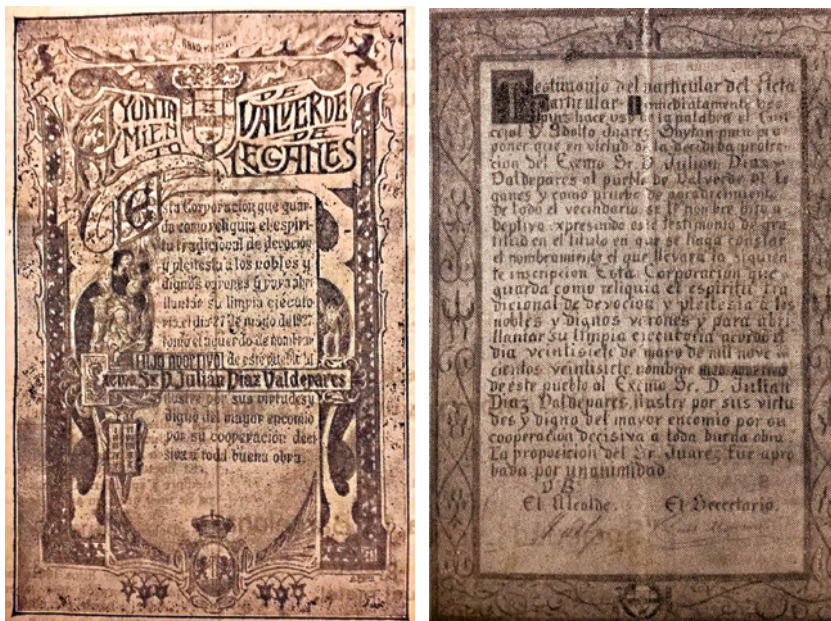 AYUNTA
MIENTO
DE
VALVERDE
DE
LEGANES
Esta Corporación que guar-
da como reliquia el espiri-
tu tradicional de devoción
y pleitesia a los nobles y
dignos varones y para abri-
llantar su limpia ejecuto
ria, el dia 27 de mayo de 1927
tomó el acuerdo de nombrar
HIJO ADOPTIVO de este pueblo al
Excmo Sr. D. Julian Diaz Valdepares
ilustre por sus virtudes y
digno del mayor encomio
por su cooperación deci
siva a toda buena obra.
Testimonio del particular del Acta
Particular Inmediatamente des
pues hace uso de la palabra el Con
cejal D. Adolfo Juarez para pro
poner que en virtud de la decidida protec
cion del Excmo Sr. D. Julian Diaz y
Valdepares al pueblo de Valverde de Le
ganes y como prueba de agradecimiento
de todo el vecindario, se le nombre hijo a
doptivo expresando este testimonio de gra
titud en el titulo en que se haga constar
el nombramiento el que llevara la siguien
te inscripcion Esta Corporacion que
guarda como reliquia el espiritu tra
dicional de devocion y pleitesia a los
nobles y dignos varones y para abri
llantar su limpia ejecutoria acordo el
dia veintisiete de mayo de mil nove
cientos veintisiete, nombrar HIJO ADOPTIVO
de este pueblo al Excmo Sr. D. Julian
Diaz Valdepares, ilustre por sus virtu
des y digno del mayor encomio por su
cooperacion decisiva a toda buena obra
La proposicion del Sr Juarez fue apro
bada por unanimidad
V B
El Alcalde. El Secretario.